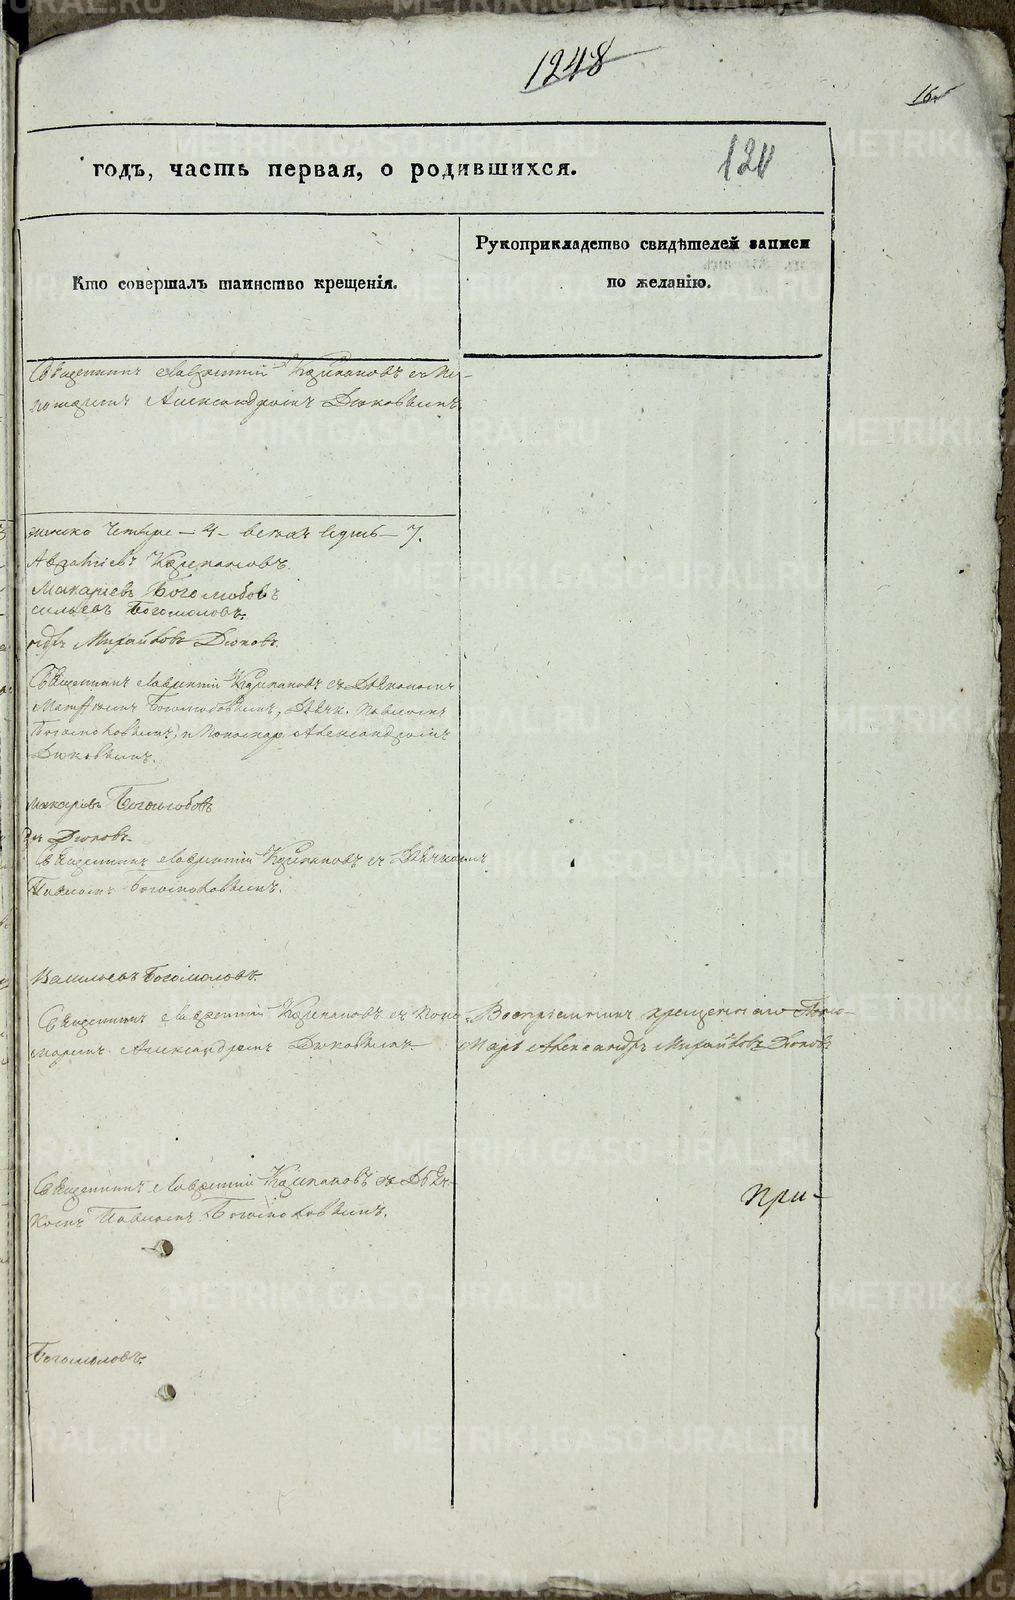 1248
16
годъ, часть первая, о родившихся.
120
Кто совершалъ таинство крещенія.
Рукоприкладство свидѣтелей записи
по желанію.
Священникъ Лаврентій Карпановъ съ По-
номаремъ Александромъ Дюковымъ.
женска четыре – 4 – всехъ седмь – 7.
Карпановъ.
Макаріевъ Боголюбовъ
сильевъ Богомоловъ.
Михайловъ Дюковъ.
Священникъ Лаврентій Карпановъ съ Діакономъ
Боголюбовымъ, Дьячк. Павломъ
Богомоловымъ, и Пономар. Александромъ
Дюковымъ.
Макаріевъ Боголюбовъ
Дюковъ.
Священникъ Лаврентій Карпановъ съ Дьячкомъ
Павломъ Богомоловымъ.
Васильевъ Богомоловъ.
Священникъ Лаврентій Карпановъ съ Поно
маремъ Александромъ Дюковымъ.
Воспріемникъ крещенія сего Поно-
марь Александръ Михайловъ Дюковъ
Священникъ Лаврентій Карпановъ съ Дьяч-
комъ Павломъ Богомоловымъ.
При-
Богомоловъ.
METRIKI.GASO-URAL.RU